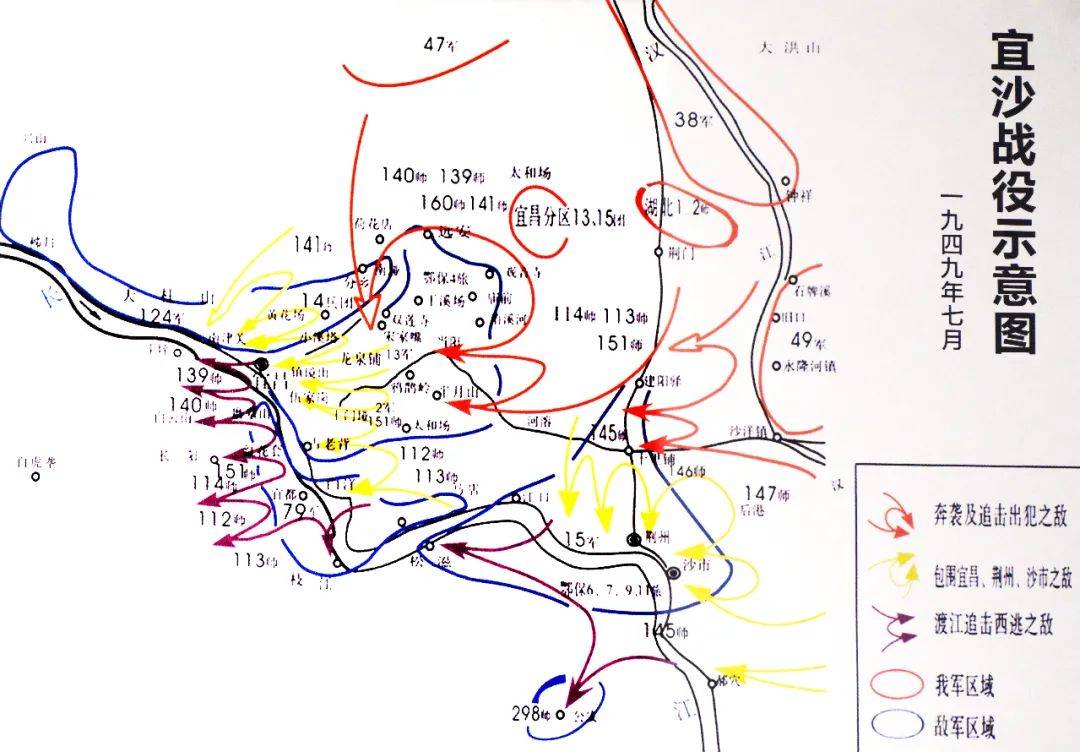 宜沙战役示意图
一九四九年七月
47军
汉
大洪山
38军
兴山
140师
139师
太和场
160师
141师
宜昌分区13.15团
湖北1 2师
钟祥
荷花店
远安
141师
荆门
江
鄂保4旅
观音寺
石牌溪
大桂山
14兵团
干溪场
庙前
124军
黄花场
双莲寺
114师
113师
旧口
南津关
小溪塔
宋家嘴
当阳
151师
49军
龙泉铺
13军
永隆河镇
139师
镇镜山
鸦鹊岭
建阳驿
伍家岗
半月山
140师
2军
151师
太和场
河溶
145师
沙洋镇
古老背
112师
十里铺
汉
白虎垄
151师
113师
146师
114师
宜都
147师
江口
后港
112师
79军
15军
荆州
113师
枝江
松滋
沙市
鄂保6、7、9、11旅
145师
郝穴
298师
江
奔袭及追击出犯之敌
包围宜昌、荆州、沙市之敌
渡江追击西逃之敌
我军区域
敌军区域